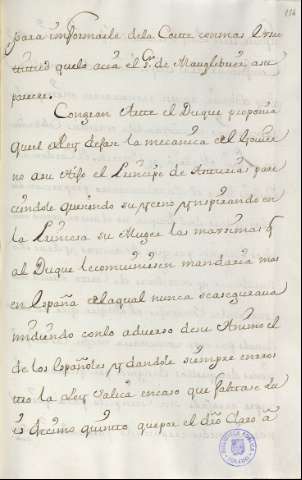 para informarle dela Corte conmas
quelo acia el S.r de Maugleburg asu
parecer.
Congran Arte el Duque proponia
quel Rey dejase la mecanica del Govier
no asu Hijo el Principe de Asturias pare
ciendole queriendo su yerno y inspirando en
la Princesa su Muger las maximas q
al Duque leconviniesen mandaria mas
en España delaqual nunca
midiendo conlo adverso desu Animo el
de los Españoles y dandole siempre en ros
tro la Ley Salica encaso que faltase Lu
is decimo quinto que por el dro Claro a